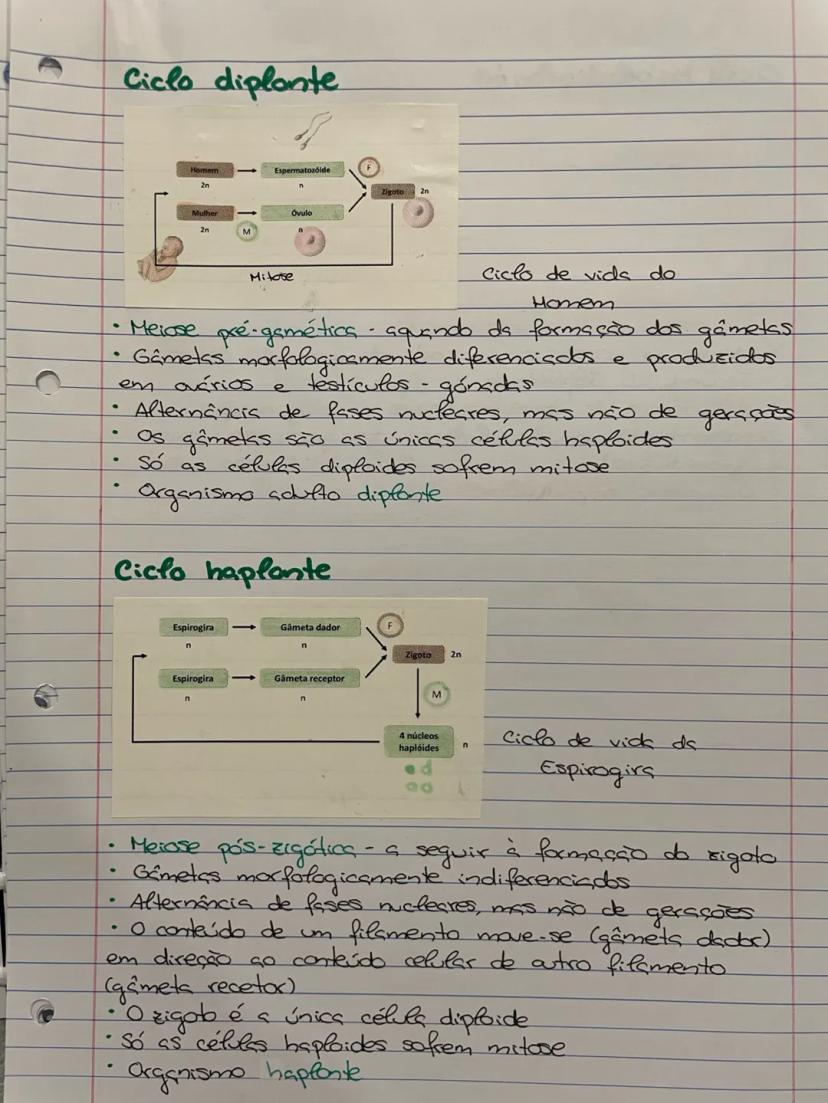 Ciclo diplonte
Homem
Espermatozóide
F
2n
n
Zigoto
2n
Mulher
Óvulo
2n
M
n
Mitose
Ciclo de vida do
Homem
• Meiose pré-gamética - aquando da formação dos gâmetas
• Gâmetas morfologicamente diferenciados e produzidos
em ovários e testículos - gónadas
• Alternância de fases nucleares, mas não de gerações
• Os gâmetas são as únicas células haploides
• Só as células diploides sofrem mitose
• Organismo adulto diplonte
Ciclo haplonte
Espirogira
Gâmeta dador
F
n
n
Zigoto
2n
Espirogira
Gâmeta receptor
n
n
M
4 núcleos
haplóides
n
Ciclo de vida da
Espirogira
• Meiose pós-zigótica - a seguir à formação do zigoto
• Gâmetas morfologicamente indiferenciados
• Alternância de fases nucleares, mas não de gerações
• O conteúdo de um filamento move-se (gâmeta dador)
em direção ao conteúdo celular de outro filamento
(gâmeta recetor)
• O zigoto é a única célula diploide
• Só as células haploides sofrem mitose
• Organismo haplonte